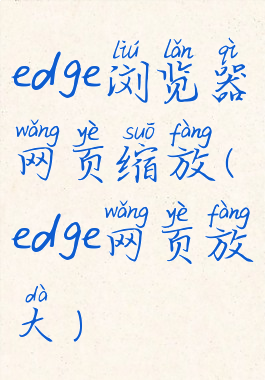 liú lǎn qì
edge浏览器
wǎng yè suō fàng
网页缩放(
wǎng yè fàng
edge网页放
dà
大)